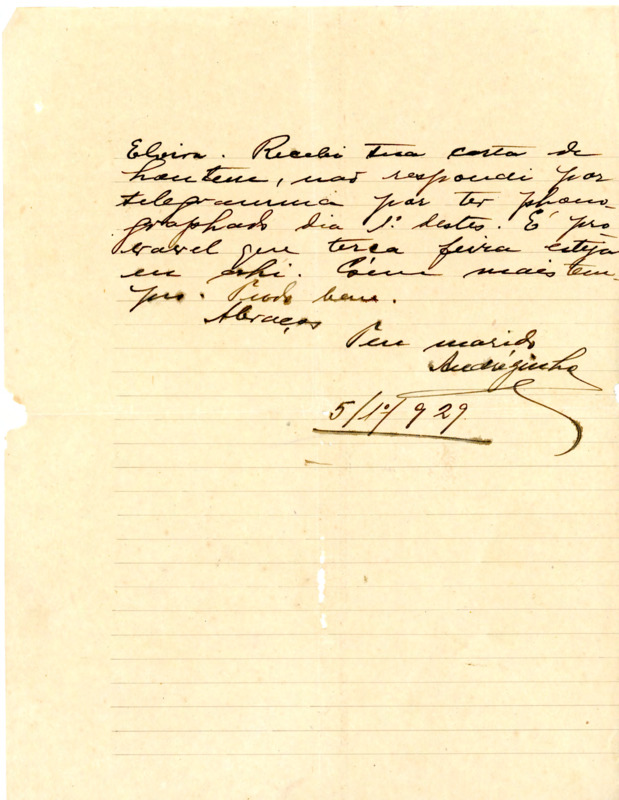 Elvira. Recebi tua carta de
hontem, não respondi por
telegramma por ter phono-
graphado dia 1º destes. É pro
vavel que terça feira esteja
em ahi. mais tem-
po. Tudo bem.
Abraços
Teu marido
Andrézinho
5/1º/929